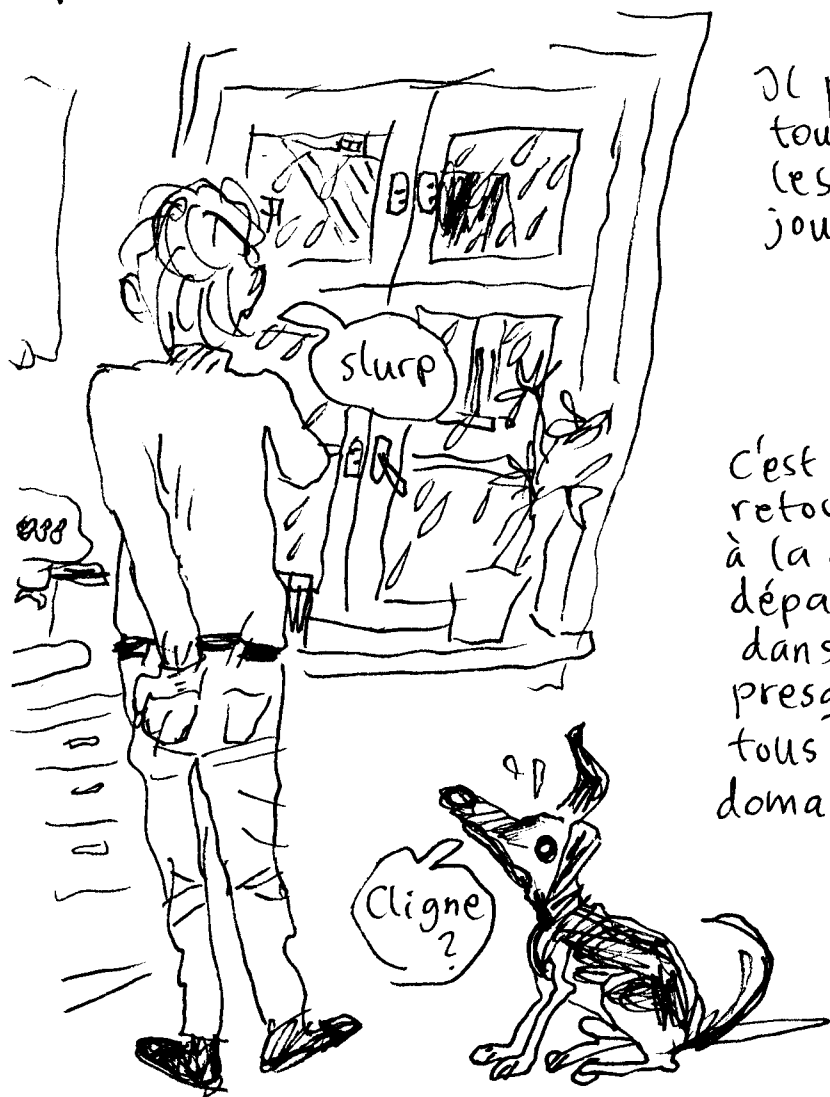 Il p
tou
les
jou
slurp
C'est
reto
à la
dépa
dans
presq
tous
doma
Cligne
?